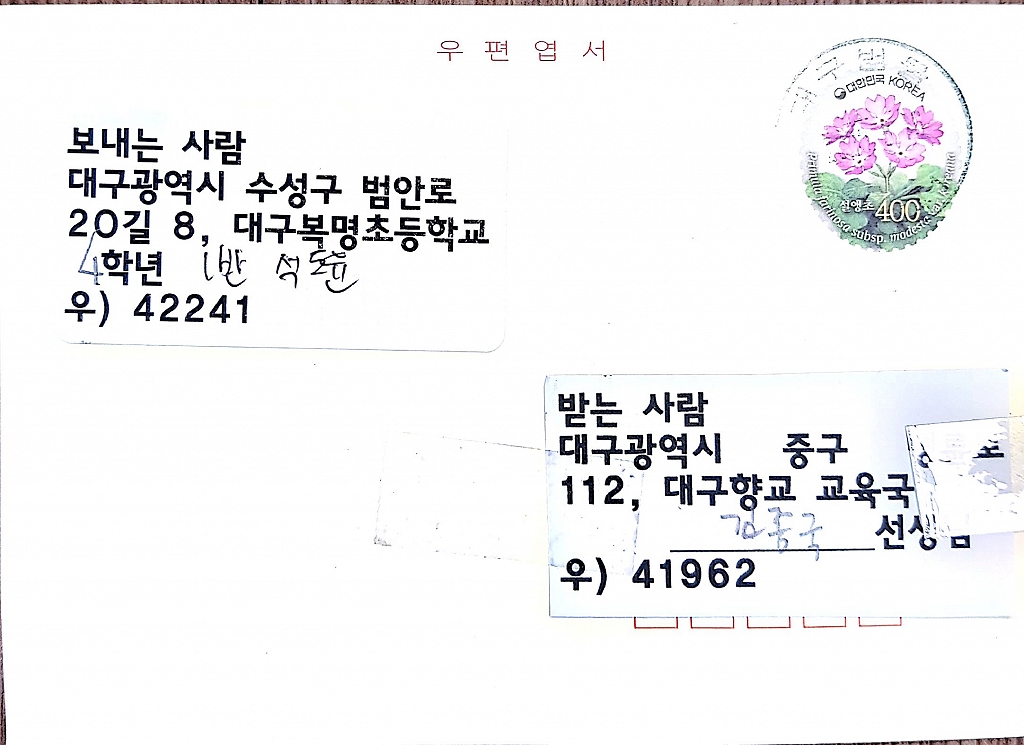 우편엽서
대구범물
대한민국 KOREA
앵초 400
Primula farinosa subsp. modesta
보내는 사람
대구광역시 수성구 범안로
20길 8, 대구복명초등학교
4학년 1반 석
우) 42241
받는 사람
대구광역시 중구
112, 대구향교 교육국
김종국 선생님
우) 41962